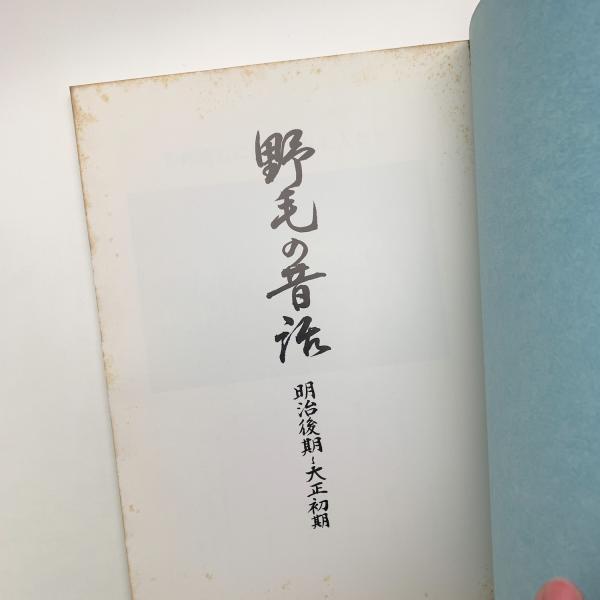 野毛の昔話
明治後期~大正初期